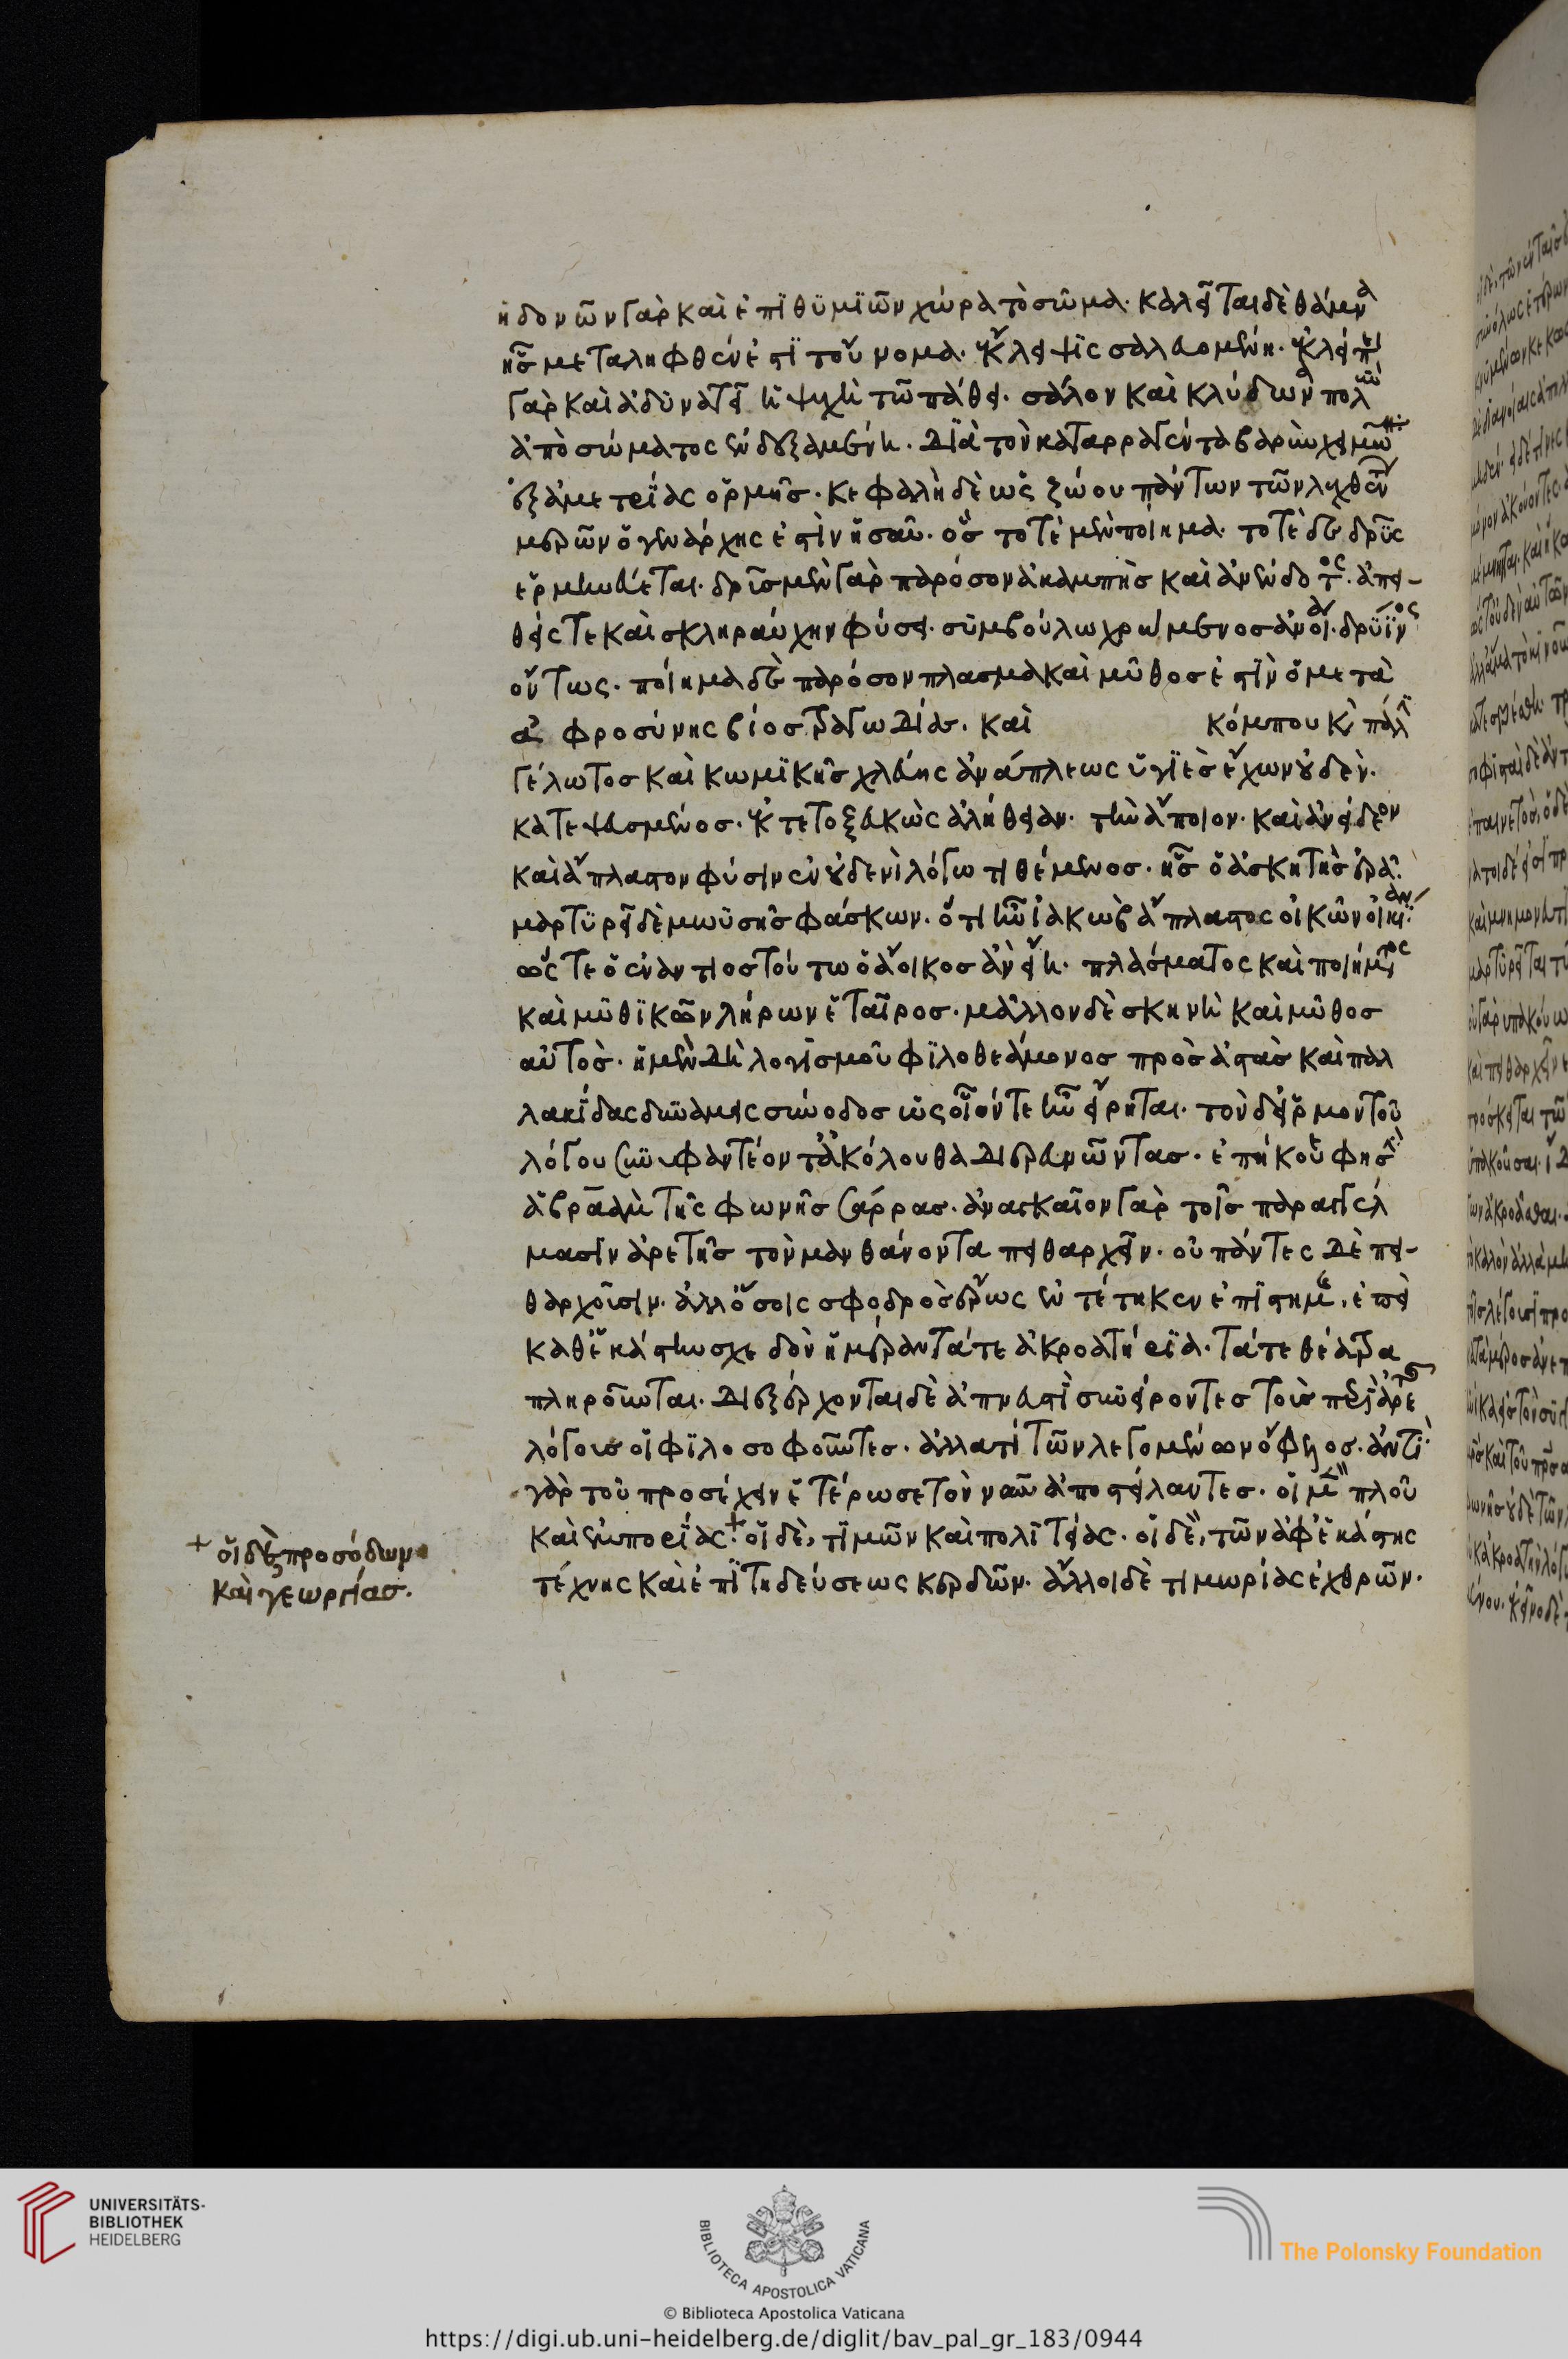 ἡδονῶν γὰρ καὶ ἐπϊθϋμϊῶν χώρα τὸ σῶμα. καλεῖται δὲ θάμνα
ἧς μεταληφθέν ἐστϊ τοὔνομα. ἔκλειψϊς σαλευομένη. ἐκλείπει
γὰρ καὶ ἀδϋνατεῖ ἡ ψυχὴ τῶ πάθει. σάλον καὶ κλύδωνα πολὺν
ἀπὸ σώματος ἐνδεξαμένη. διὰ τὸν καταρραγέντα βαρὺν χειμῶνα
ἐξ ἀμετρίας ὁρμῆς. κεφαλὴ δὲ ὡς ζώου πάντων τῶν λεχθέντων
μερῶν ὁ γενάρχης ἐστὶν ἠσαῦ. ὃς τοτὲ μὲν ποίημα. τοτὲ δὲ δρῦς
ἑρμηνεύεται. δρῦς μὲν γὰρ παρόσον ἀκαμπὴς καὶ ἀνένδοτος. ἀπει-
θής τε καὶ σκληραύχην φύσει. συμβούλω χρώμενος ἀνοίαι. δρύϊνος
ὄντως. ποίημα δὲ παρόσον πλάσμα καὶ μῦθος ἐστὶν ὁ μετὰ
ἀφροσύνης βίος τραγωδίας. καὶ κόμπου καὶ πάλιν
γέλωτος καὶ κωμϊκῆς χλεύης ἀνάπλεως ὑγϊὲς ἔχων οὐδὲν.
κατεψευσμένος. ἐκτετοξευκὼς ἀλήθειαν. τὴν ἄποιον. καὶ ἀνείδεον
καὶ ἄπλαστον φύσιν ἐν οὐδενὶ λόγω τιθέμενος. ἧς ὁ ἀσκητὴς ἐρᾶ.
μαρτϋρεῖ δὲ μωϋσῆς φάσκων. ὅτι ἦν ἰακὼβ ἄπλαστος οἰκῶν οἰκίαν.
ὥστε ὁ ἐναντιος τούτω ὁ ἄοικος ἂν εἴη. πλάσματος καὶ ποιήματος
καὶ μῦθϊκῶν λήρων ἑταῖρος. μᾶλλον δὲ σκηνὴ καὶ μῦθος
αὐτὸς. ἡ μὲν δὴ λογϊσμοῦ φϊλοθεάμονος πρὸς ἀστὰς καὶ παλ
λακίδας δυνάμεις σύνοδος ὡς οἷόν τε ἦν εἴρηται. τὸν δ' εἱρμον τοῦ
λόγου συνϋφαντέον τἀκόλουθα διερευνῶντας. ἐπήκουσε φησὶ
ἁβραὰμ τῆς φωνῆς σάρρας. ἀναγκαῖον γὰρ τοῖς παραγγέλ
μασιν ἀρετῆς τὸν μανθάνοντα πειθαρχεῖν. οὐ πάντες δὲ πει-
θαρχοῦσιν. ἀλλ' ὅσοις σφοδρὸς ἔρως ἐντέτηκεν ἐπιστήμης. ἐπεὶ
καθἑκάστην σχεδὸν ἡμέραν τά τε ἀκροατήρϊα. τά τε θέατρα
πληροῦνται. διεξέρχονται δὲ ἀπνευστὶ συνείροντες τοὺς περὶ ἀρετῆς
λόγους οἱ φϊλοσοφοῦντες. ἀλλα τί τῶν λεγομένων ὄφελος. ἀντὶ
γὰρ τοῦ προσέχειν ἑτέρωσε τὸν νοῦν ἀποστείλαντες. οἱ μὲν πλοῦ
καὶ ἐμπορίας. + οἱ δὲ, τϊμῶν καὶ πολϊτείας. οἱ δὲ, τῶν ἀφἑκάστης
τέχνης καὶ ἐπϊτηδεύσεως κερδῶν. ἄλλοι δὲ τιμωρίας ἐχθρῶν.
+ οἱ δὲ προσόδων
καὶ γεωργίας.
UNIVERSITÄTS-
BIBLIOTHEK
HEIDELBERG
BIBLIOTECA APOSTOLICA VATICANA
The Polonsky Foundation
© Biblioteca Apostolica Vaticana
https://digi.ub.uni-heidelberg.de/diglit/bav_pal_gr_183/0944